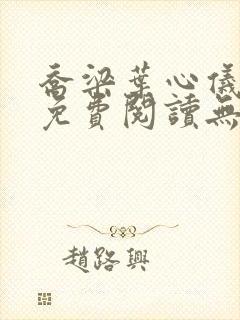 喬梁葉心儀
免費閱讀無
趙路興